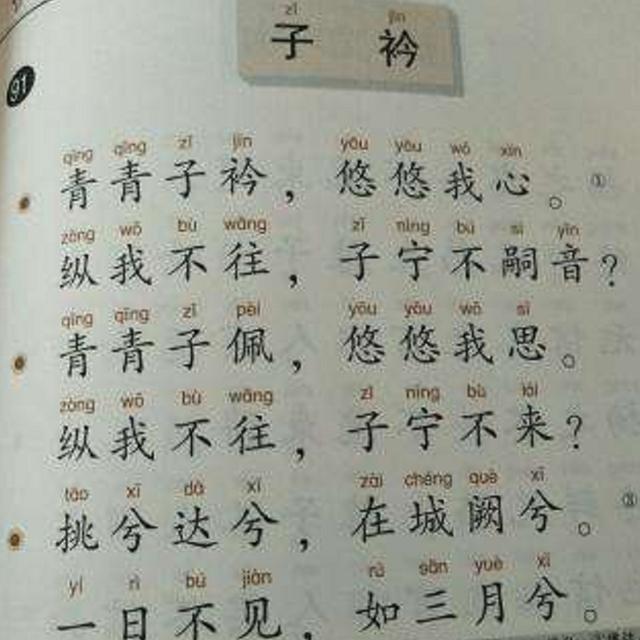 zǐ jīn
子 衿
91
qīng qīng zǐ jīn yōu yōu wǒ xīn
青青子衿，悠悠我心。①
zòng wǒ bù wǎng zǐ nìng bù sì yīn
纵我不往，子宁不嗣音？
qīng qīng zǐ pèi yōu yōu wǒ sī
青青子佩，悠悠我思。
zòng wǒ bù wǎng zǐ nìng bù lái
纵我不往，子宁不来？
tāo xī dá xī zài chéng què xī
挑兮达兮，在城阙兮。③
yí rì bú jiàn rú sān yuè xī
一日不见，如三月兮。